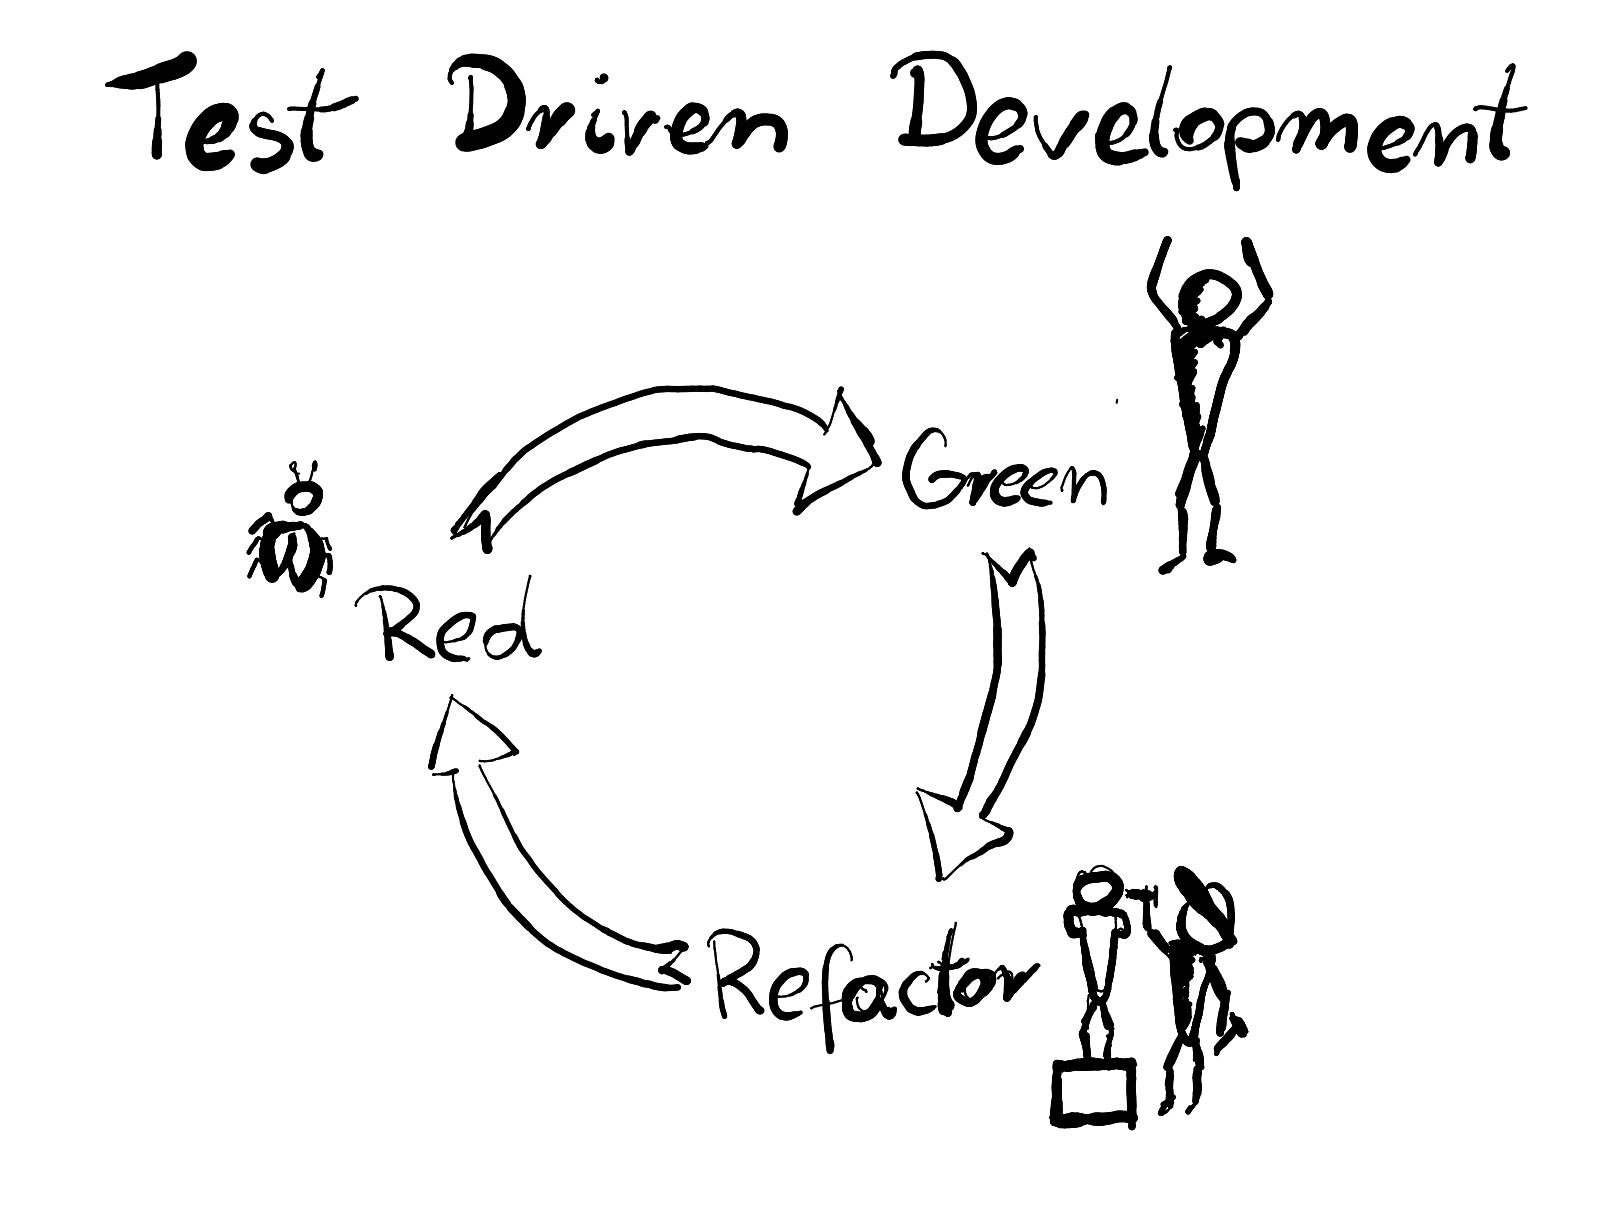 Test Driven Development
Green
Red
Refactor